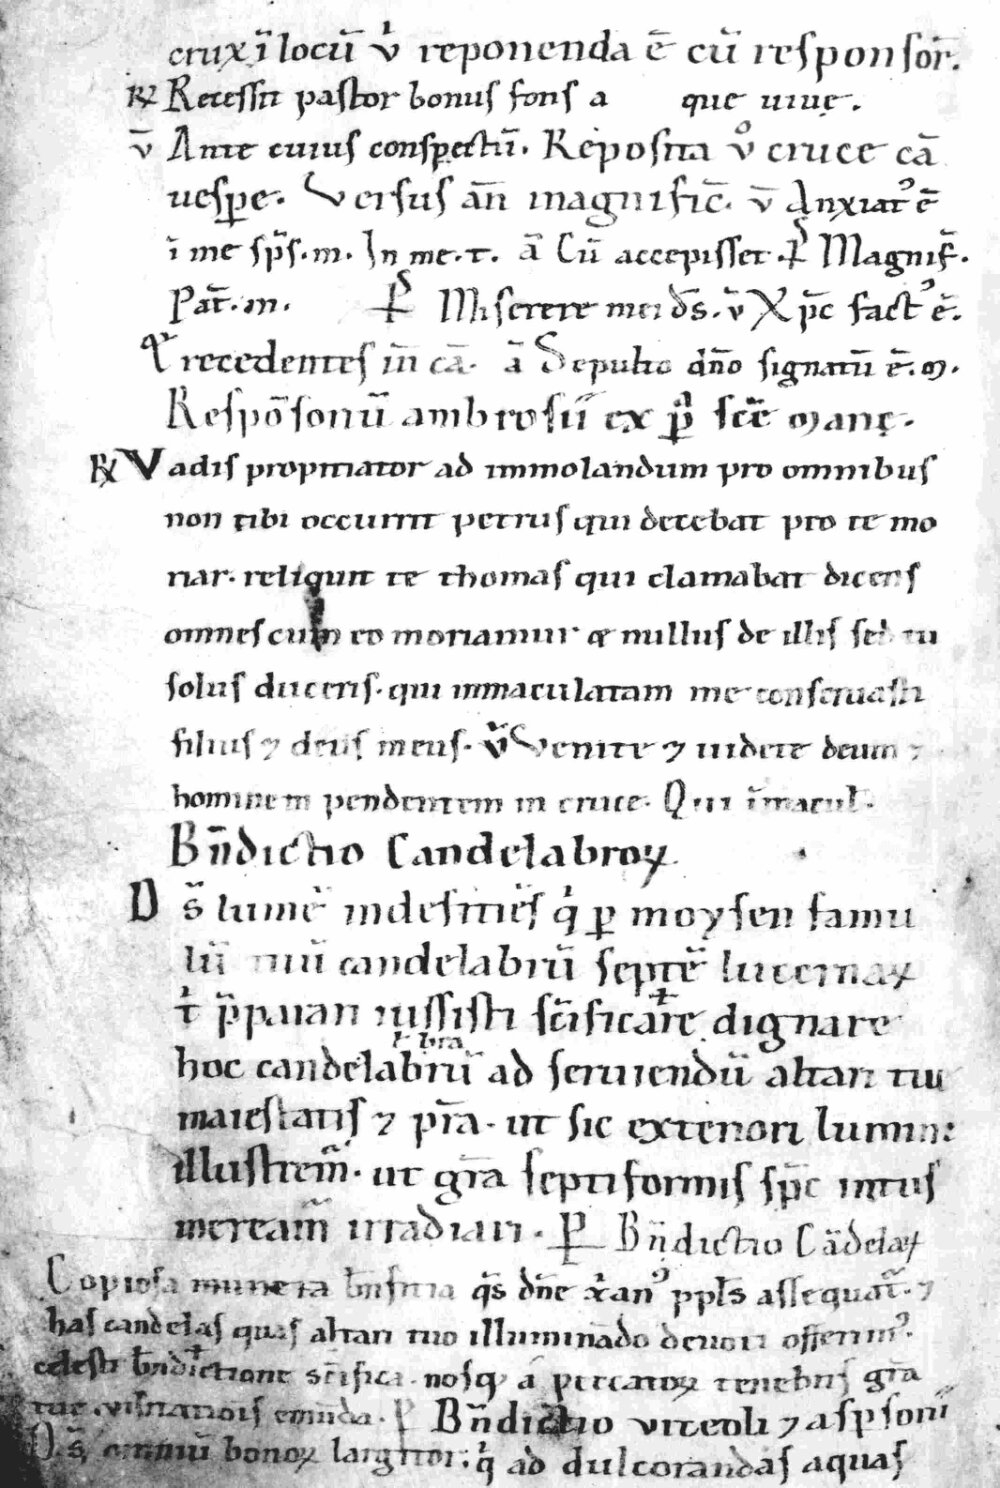 crux ī locū v̓ reponenda ē cū responsor̄.
℞ Recessit pastor bonus fons a que uiuę.
v̄ Ante cuius conspectū. Reposita v̊ cruce cā
uesꝑe. Versus an̄ magnific̄. v̄ Anxiatꝰ ē
ī me sp̄s. m. In me. t. ā Cū accepisset. Ꝑ Magnif̄.
Pat̄. m. Ꝑ Miserere mei d̄s. v̄ Xp̄c factꝰ ē.
recedentes in̄ cā. ā Sepulto dn̄o signatū ē. m.
Respōsoriū ambrosii ex scē manę.
℞ Vadis propitiator ad immolandum pro omnibus
non tibi occurrit petrus qui dicebat pro te mo
riar. reliquit te thomas qui clamabat dicens
omnes cum eo moriamur & nullus de illis sed tu
solus duceris. qui inmaculatam me conseruasti
filius ⁊ deus meus. v̄ Venite ⁊ uidete deum ⁊
hominem pendentem in cruce. Qui īmacul.
Bn̄dictio Candelabroꝝ.
D s̄ lumē indesinēs q̓ ꝑ moysen famu
lū tuū candelabrū septē lucernaꝝ
t̓ p̄parari iussisti sc̄ificare dignare
hoc candelabrū ad seruiendū altari tue
maiestatis ⁊ pr̄a. ut sic exteriori lumine
illustrem̄. ut gr̄a septiformis sp̄c intus
meream̄ irradiari. Ꝑ Bn̄dictio Cādelaꝝ
Copiosa munera bn̄ficia q̄s dn̄e x̓anꝰ ppl̄s assequat̄. ⁊
has candelas quas altari tuo illuminādo deuoti offerimꝰ.
celesti bn̄dictione sc̄ifica. nosqꝫ a peccatoꝝ tenebris gr̄a
tue uisitationis emūda. Ꝑ Bn̄dictio uiteoli ⁊ aspsorii
D s̄ omniū bonoꝝ largitor. q̓ ad dulcorandas aquas